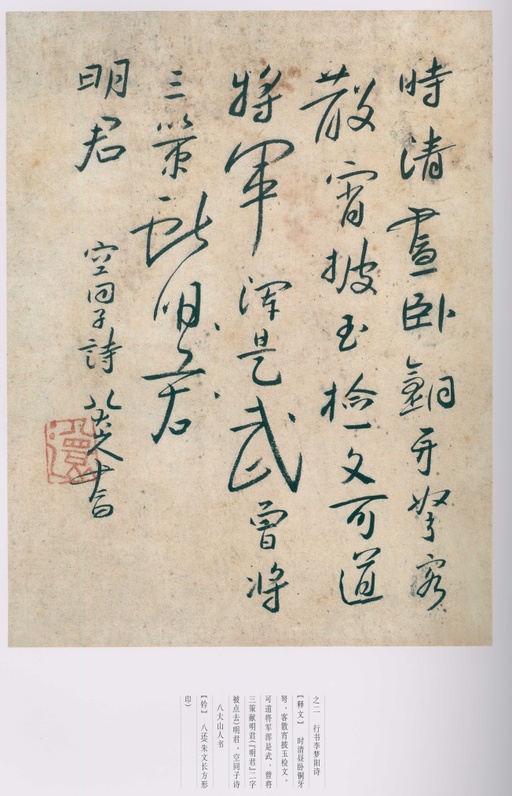 時清晝臥銅牙弩客
散宵披玉檢文可道
將軍渾是武曾將
三策献明君
明君
空同子詩 八大山人書
之二 行书李梦阳诗
【释文】 时清昼卧铜牙
弩，客散宵披玉检文，
可道将军浑是武，曾将
三策献明君(『明君』二字
被点去)明君，空同子诗
八大山人书
【钤】 八还(朱文长方形
印)